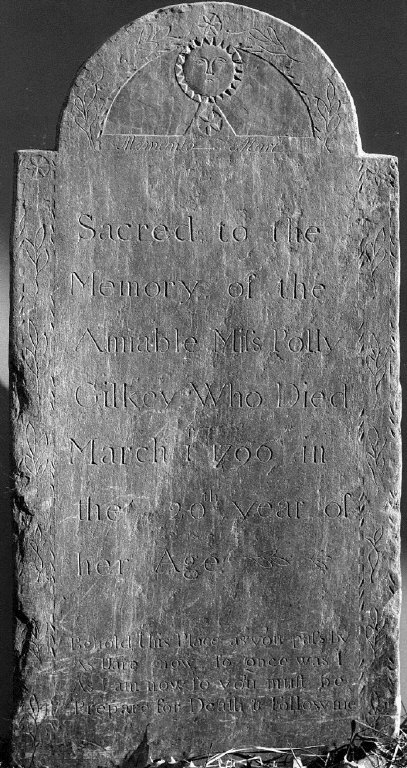 Memento Mori
Sacred to the
Memory of the
Amiable Miſs Polly
Gilkey Who Died
March 1st 1799 in
the 20th year of
her Age
Behold This Place as you paſs by
As you are now so once was I
As I am now so you must be
Prepare for Death & follow me